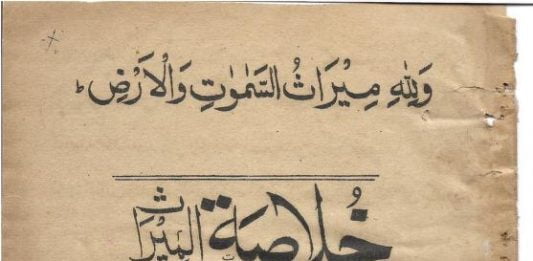 وَلِلّٰهِ مِيْرَاثُ السَّمٰوٰتِ وَالْاَرْضِ ط
خُلاصَة المِيْرَاث